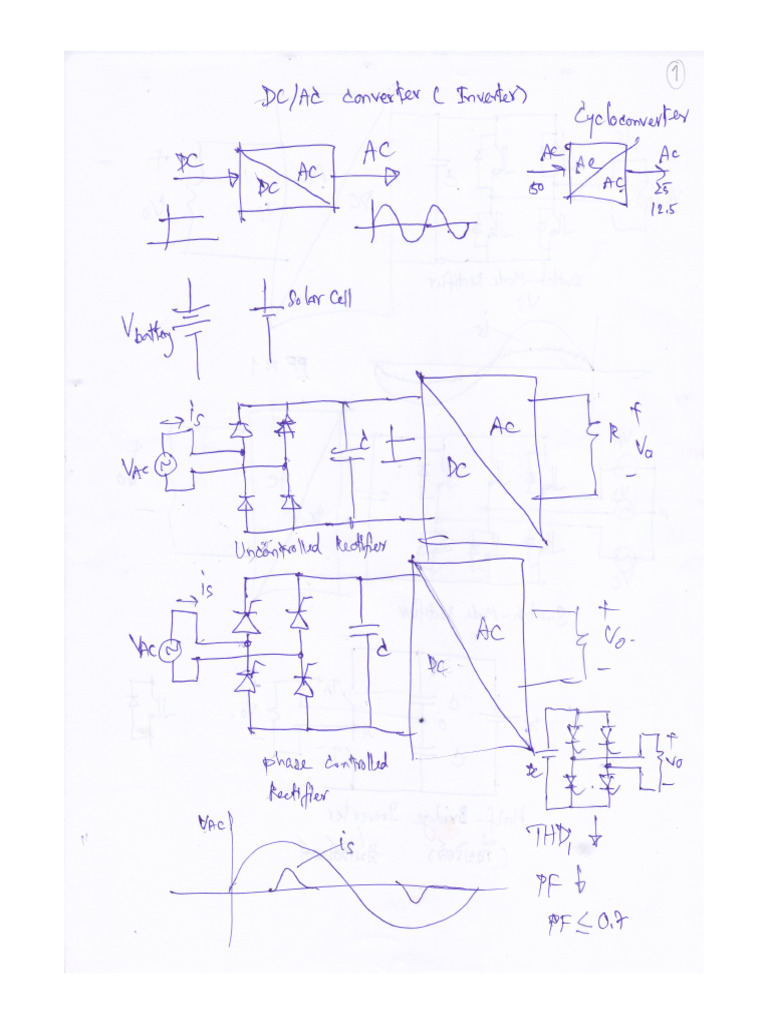 1
DC/AC Converter ( Inverter)
Cycloconverter
DC
DC
AC
AC
AC
50
AC
AC
AC
25
12.5
Vbattery
Solar Cell
is
VAC
d
DC
AC
R
+
Vo
-
Uncontrolled Rectifier
is
VAC
d
DC
AC
+
Vo
-
phase controlled
Rectifier
+
Vo
-
VAC
is
THDi ↓
PF ↓
PF ≤ 0.7